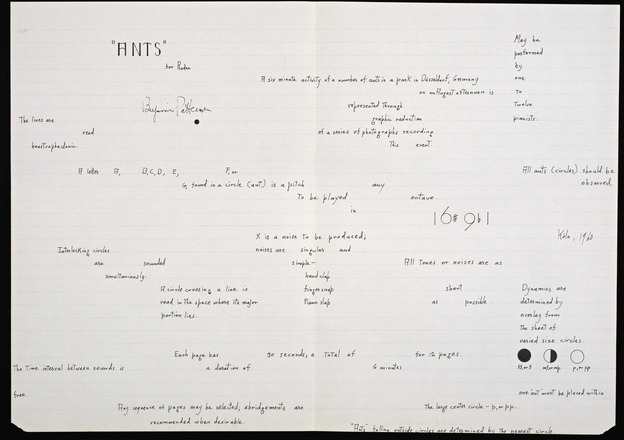 "ANTS"
for Ruta
May be
performed
by
one
to
twelve
pianists.
A six minute activity of a number of ants in a park in Düsseldorf, Germany
on an August afternoon is
represented through
graphic reduction
of a series of photographs recording
this event.
Benjamin Patterson
The lines are
read
A letter A, B, C, D, E, F, or
G, found in a circle (ant) is a pitch any
To be played octave.
in
All ants (circles) should be
observed.
16 61
Köln, 1960
X is a noise to be produced;
noises are singular and
simple-
hand clap
finger snap
Piano slap
Interlocking circles
are sounded
simultaneously.
All tones or noises are as
short
as possible.
A circle crossing a line is
read in the space where its major
portion lies.
Dynamics are
determined by
overlay from
the sheet of
varied size circles.
ff, or f mf or mp p, or pp
Each page has 30 seconds, a total of for 12 pages.
The time interval between sounds is a duration of 6 minutes
free.
one but must be placed within
The large center circle - p, or pp.
Any sequence of pages may be selected; abridgements are
recommended when desirable.
"Ants" falling outside circles are determined by the nearest circle.